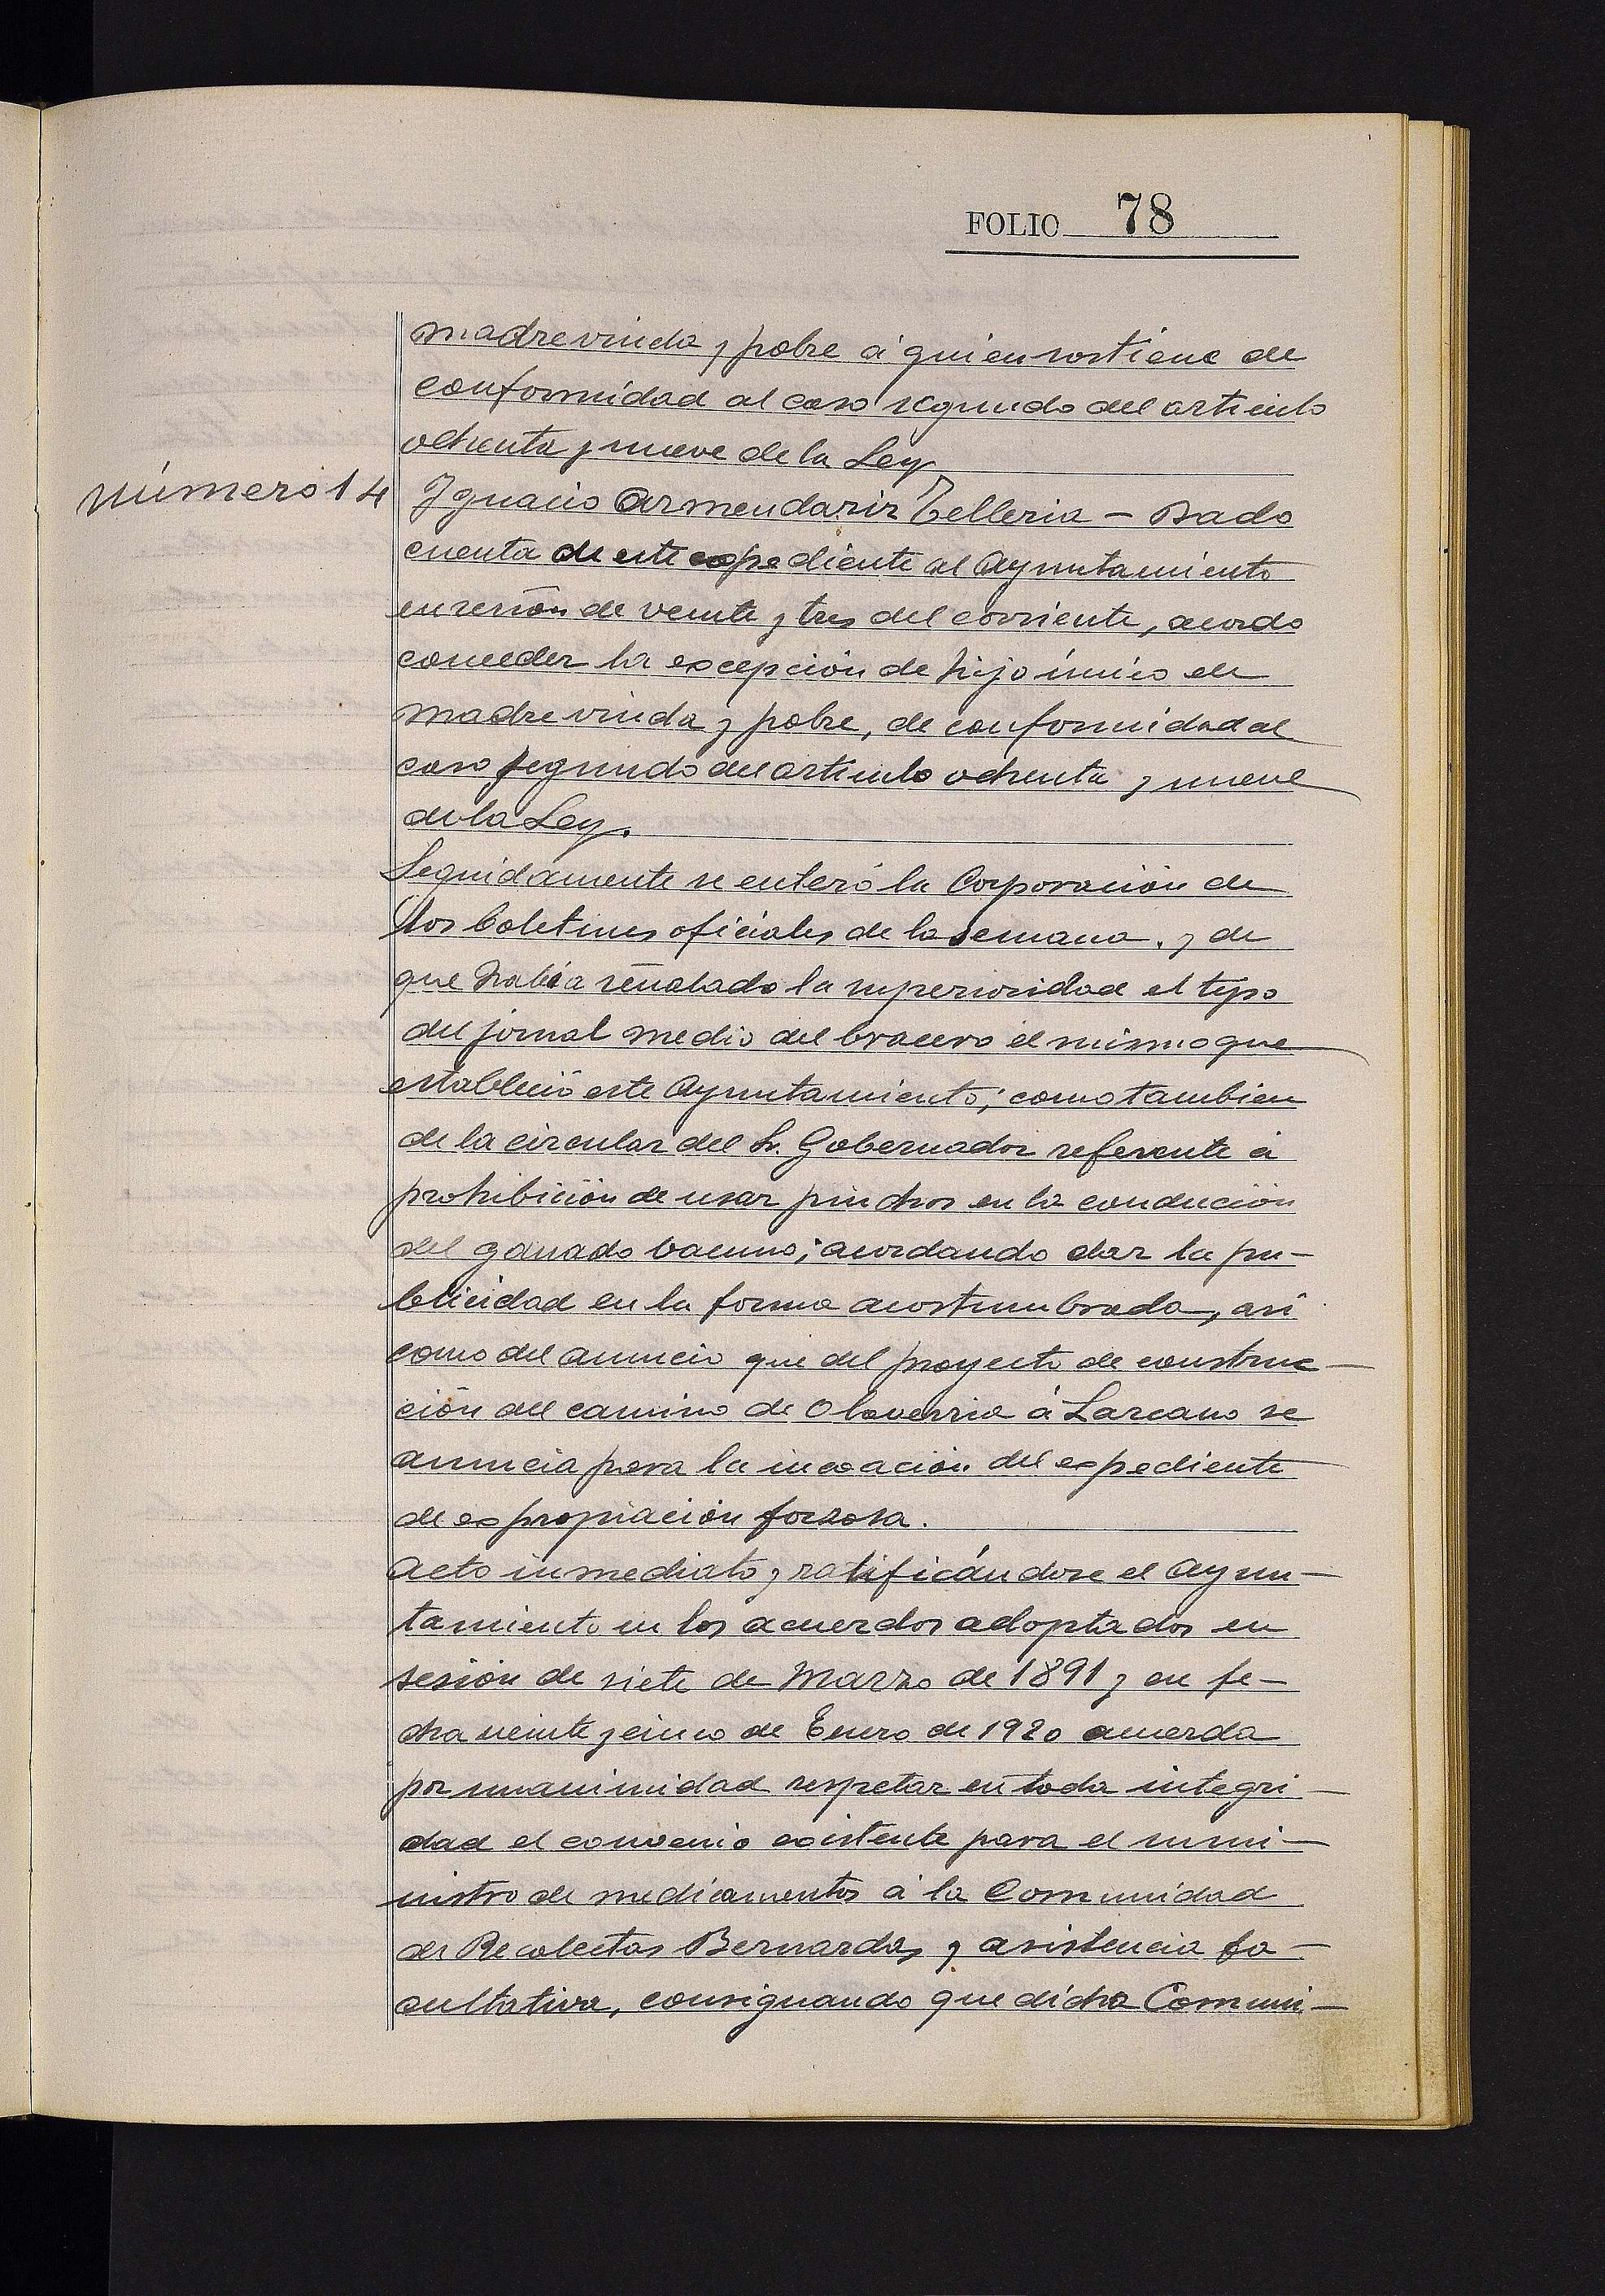 FOLIO 78
madre viuda y pobre á quien sostiene de
conformidad al caso segundo del artículo
ochenta y nueve de la Ley
número 14
Ignacio Armendariz Telleria - Dado
cuenta de este expediente al Ayuntamiento
en sesión de veinte y tres del corriente, acordo
conceder la excepción de hijo único de
madre viuda y pobre, de conformidad al
caso segundo del artículo ochenta y nueve
de la Ley.
Seguidamente se enteró la Corporación de
los boletines oficiales de la semana. y de
que había señalado la superioridad el tipo
del jornal medio del bracero el mismo que
estableció este Ayuntamiento; como tambien
de la circular del Sr. Gobernador referente á
prohibición de usar pinchos en la conducción
del ganado vacuno; acordando dar la pu-
blicidad en la forma acostumbrada, así
como del anuncio que del proyecto de construc-
ción del camino de Olaverria á Lazcano se
anuncia para la incoación del expediente
de expropiación forzosa.
Acto inmediato y ratificándose el Ayun-
tamiento en los acuerdos adoptados en
sesión de siete de Marzo de 1891 y en fe-
cha veinte y cinco de Enero de 1920 acuerda
por unanimidad respetar en toda integri-
dad el convenio existente para el sumi-
nistro de medicamentos á la Comunidad
de Recoletas Bernardas y asistencia fa-
cultativa, consignando que dicha Comuni-